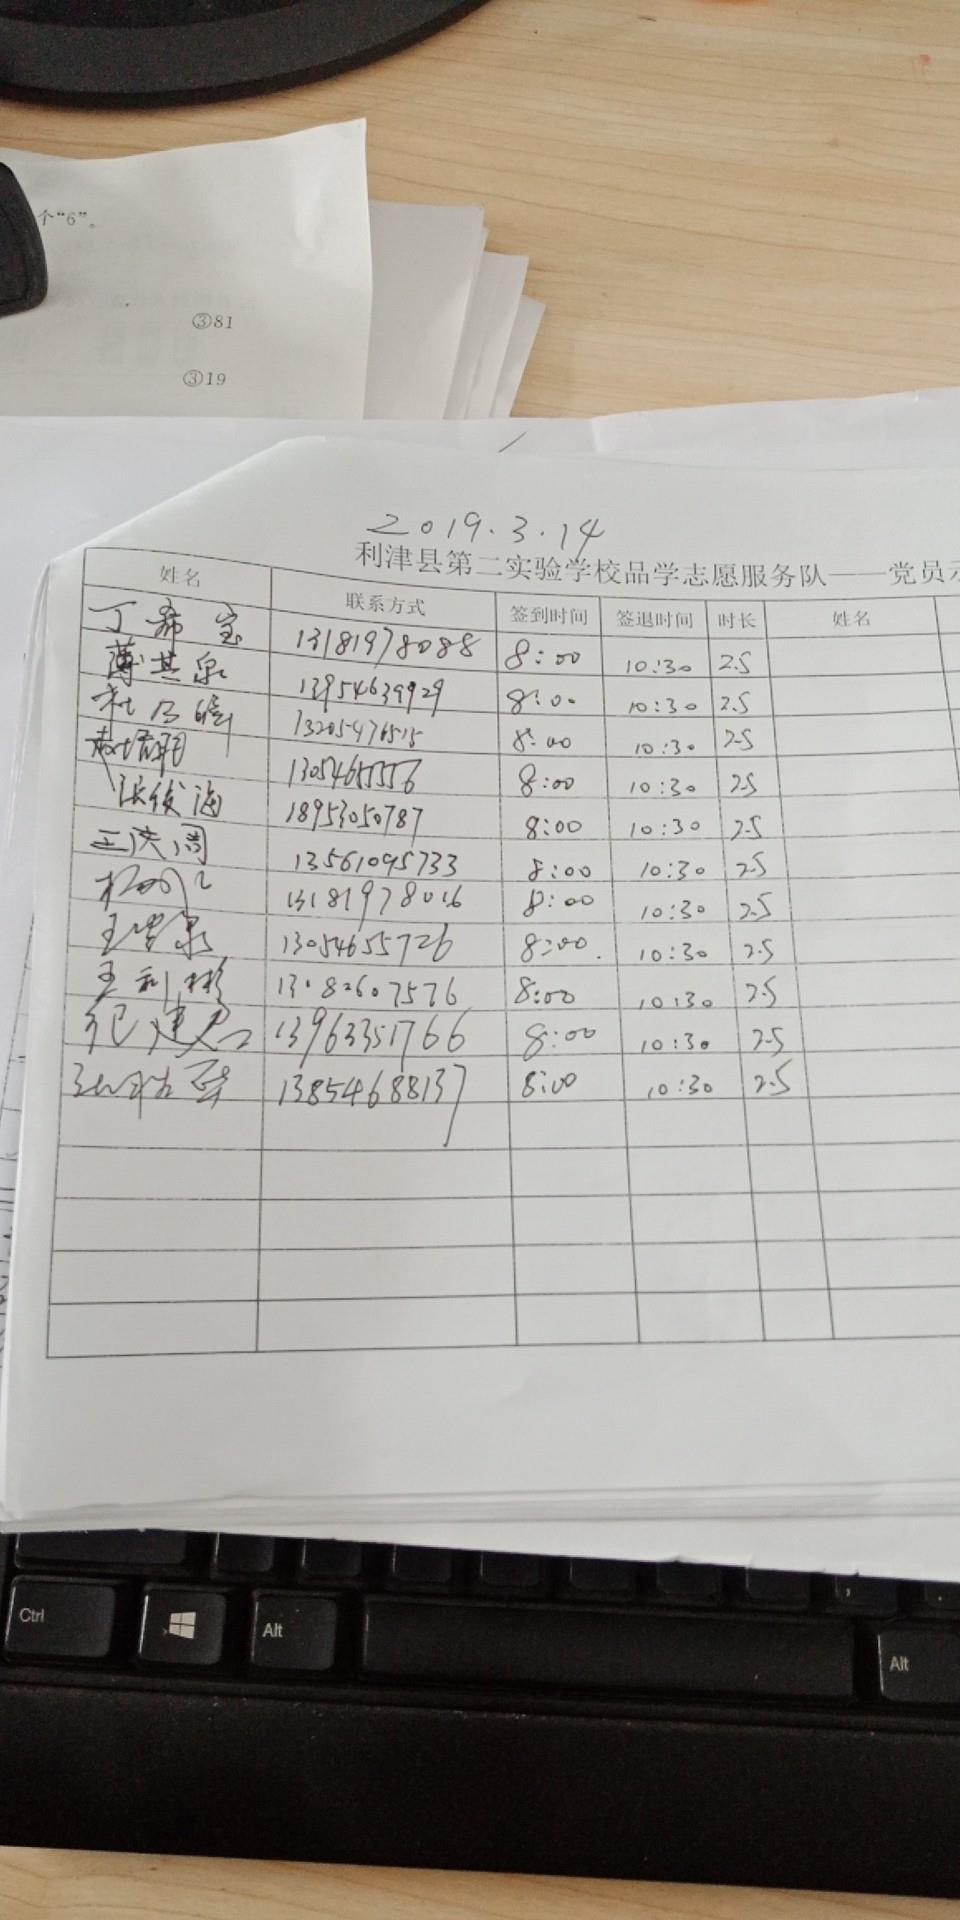 个“6”。
③81
③19
2019.3.14
利津县第二实验学校品学志愿服务队——党员示
姓名 联系方式 签到时间 签退时间 时长 姓名
丁希宝 13181978088 8:00 10:30 2.5
薄其泉 13954639929 8:00 10:30 2.5
13205476515 8:00 10:30 2.5
13054655556 8:00 10:30 2.5
张俊海 18953050787 8:00 10:30 2.5
王洪周 13561095733 8:00 10:30 2.5
13181978016 8:00 10:30 2.5
13054655726 8:00 10:30 2.5
王利彬 13082607576 8:00 10:30 2.5
13963351766 8:00 10:30 2.5
13854688137 8:00 10:30 2.5
Ctrl Alt Alt